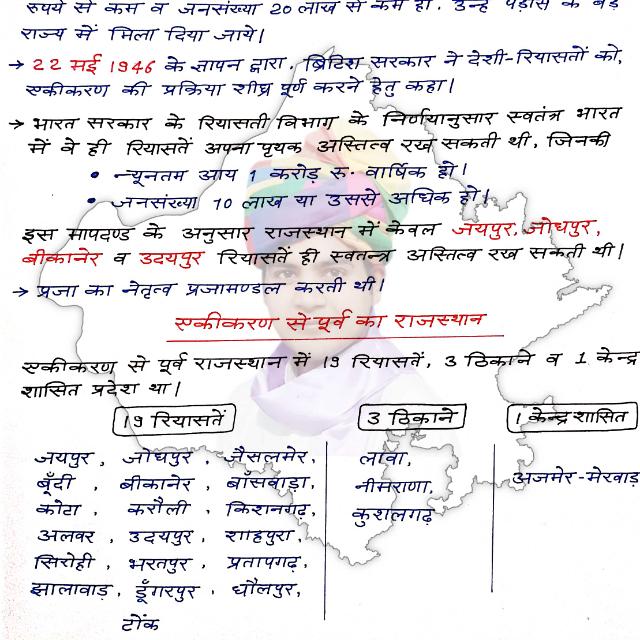 रुपये से कम व जनसंख्या 20 लाख से कम हो. उन्हें पड़ौस के बड़े
राज्य में मिला दिया जाये।
→ 22 मई 1946 के ज्ञापन द्वारा. ब्रिटिश सरकार ने देशी-रियासतों को,
एकीकरण की प्रक्रिया शीघ्र पूर्ण करने हेतु कहा।
→ भारत सरकार के रियासती विभाग के निर्णयानुसार स्वतंत्र भारत
में वे ही रियासतें अपना पृथक अस्तित्व रख सकती थी, जिनकी
• न्यूनतम आय 1 करोड़ रु. वार्षिक हो।
• जनसंख्या 10 लाख या उससे अधिक हो।
इस मापदण्ड के अनुसार राजस्थान में केवल जयपुर, जोधपुर,
बीकानेर व उदयपुर रियासतें ही स्वतन्त्र अस्तित्व रख सकती थी।
→ प्रजा का नेतृत्व प्रजामण्डल करती थी।
एकीकरण से पूर्व का राजस्थान
एकीकरण से पूर्व राजस्थान में 19 रियासतें, 3 ठिकाने व 1 केन्द्र
शासित प्रदेश था।
19 रियासतें
जयपुर, जोधपुर, जैसलमेर,
बूँदी, बीकानेर, बाँसवाड़ा,
कोटा, करौली, किशनगढ़,
अलवर, उदयपुर, शाहपुरा,
सिरोही, भरतपुर, प्रतापगढ़,
झालावाड़, डूँगरपुर, धौलपुर,
टोंक
3 ठिकाने
लावा,
नीमराणा,
कुशलगढ़
1 केन्द्र शासित
अजमेर-मेरवाड़